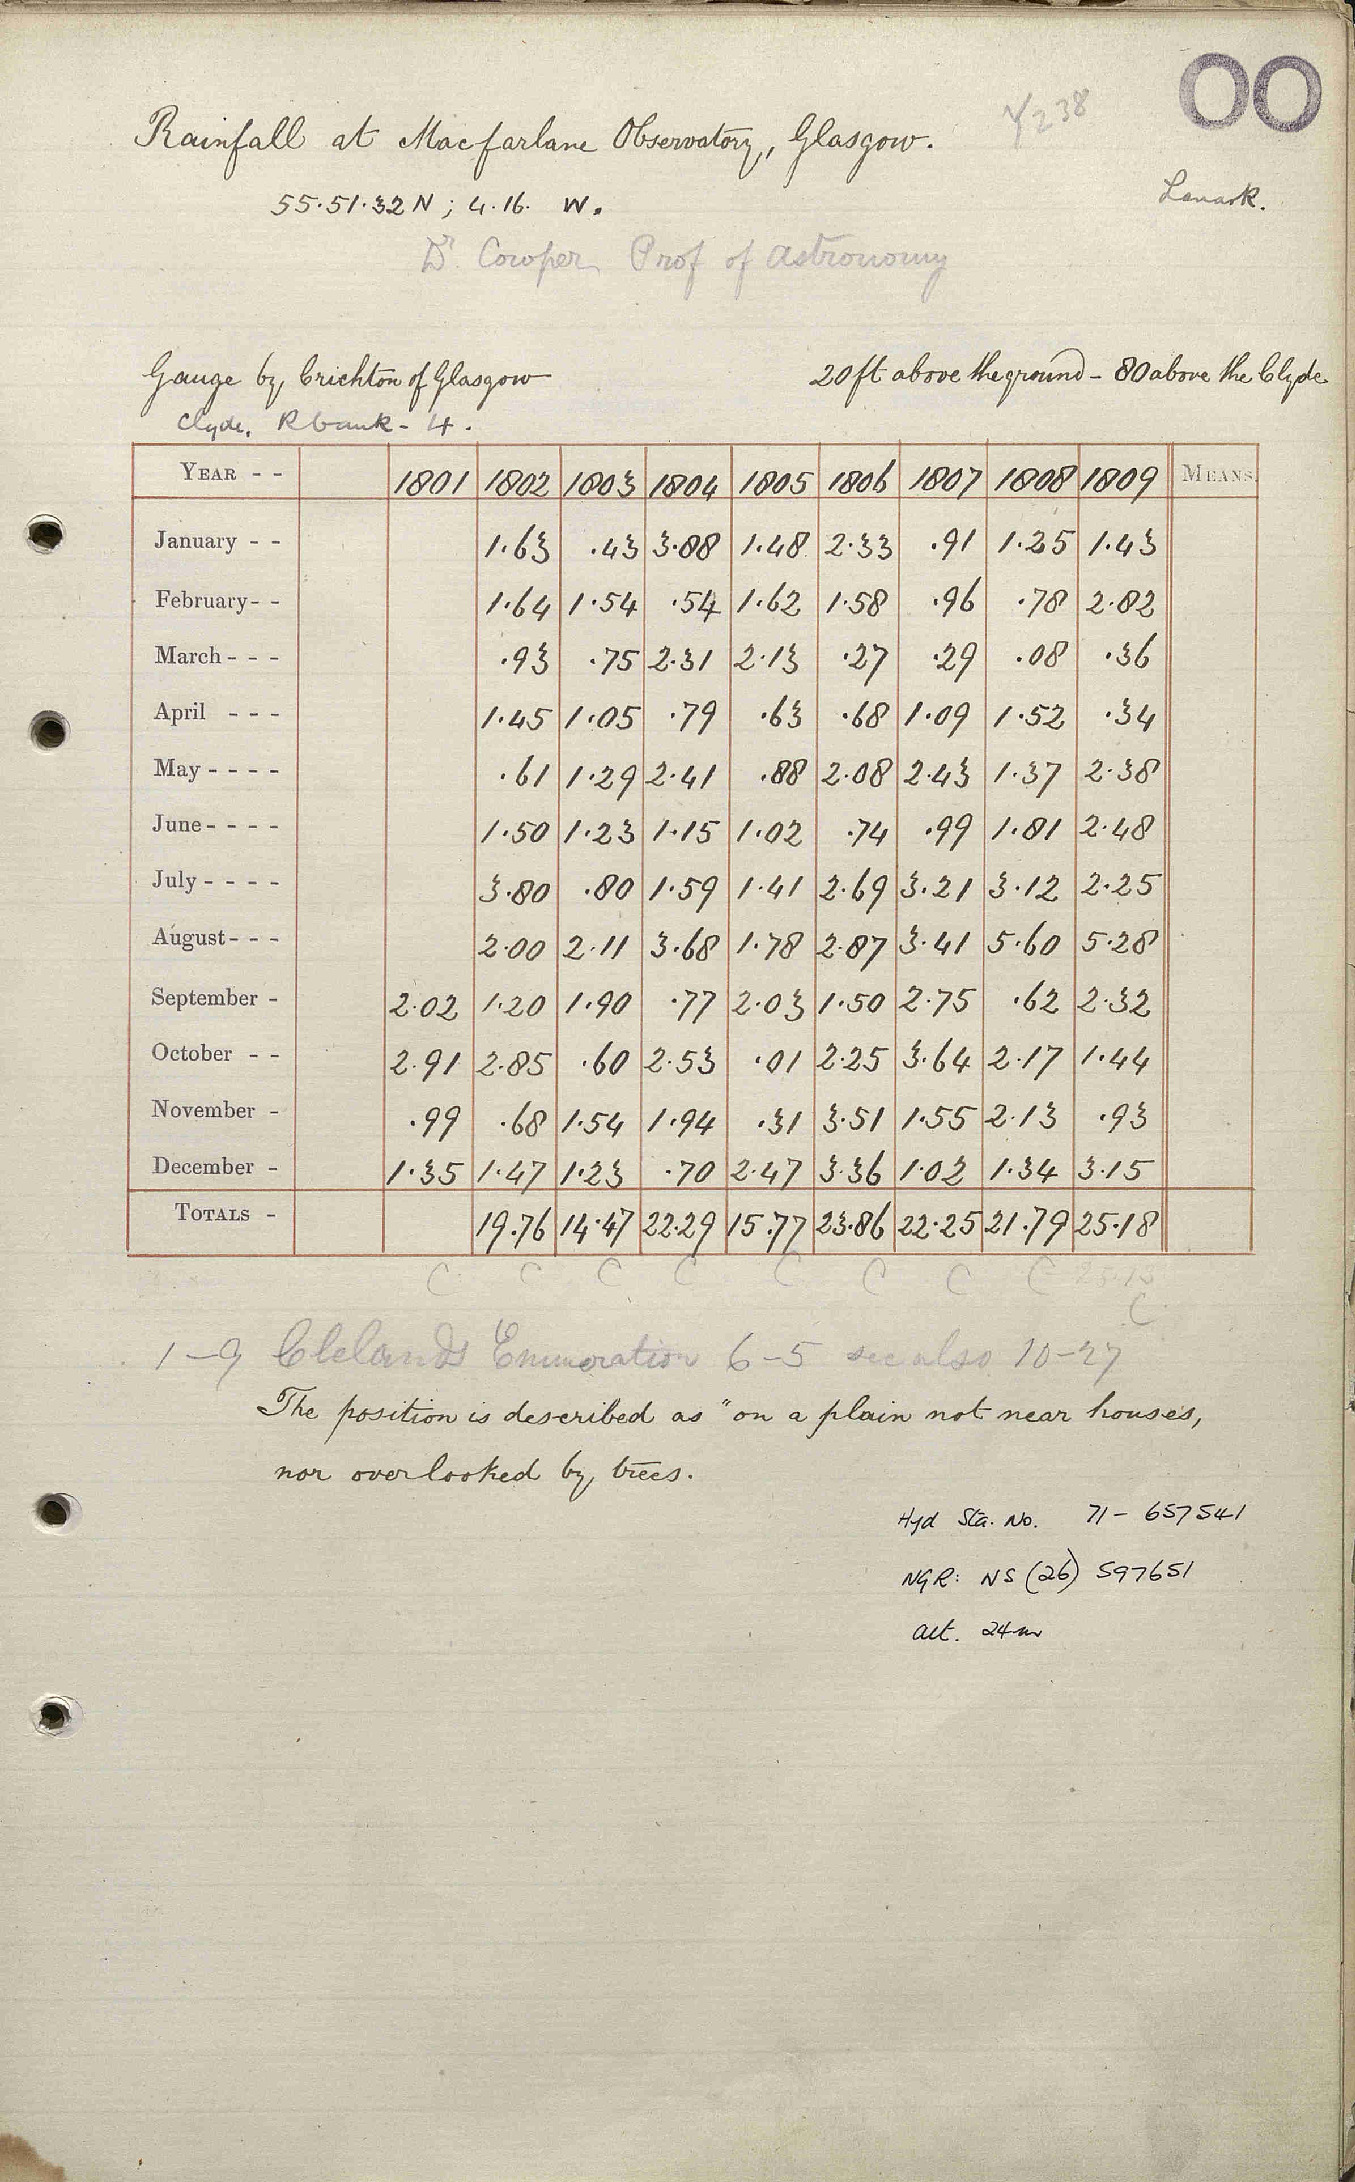 OO
Y238
Rainfall at Macfarlane Observatory, Glasgow.
Lanark.
55.51.32 N ; 4.16. W.
Dr Cowper Prof of Astronomy
Gauge by Crichton of Glasgow
20 ft above the ground - 80 above the Clyde
Clyde. R bank - 4.
YEAR - - 1801 1802 1803 1804 1805 1806 1807 1808 1809 MEANS.
January - - 1.63 .43 3.88 1.48 2.33 .91 1.25 1.43
February - - 1.64 1.54 .54 1.62 1.58 .96 .78 2.82
March - - - .93 .75 2.31 2.13 .27 .29 .08 .36
April - - - 1.45 1.05 .79 .63 .68 1.09 1.52 .34
May - - - - .61 1.29 2.41 .88 2.08 2.43 1.37 2.38
June - - - - 1.50 1.23 1.15 1.02 .74 .99 1.81 2.48
July - - - - 3.80 .80 1.59 1.41 2.69 3.21 3.12 2.25
August - - - 2.00 2.11 3.68 1.78 2.87 3.41 5.60 5.28
September - 2.02 1.20 1.90 .77 2.03 1.50 2.75 .62 2.32
October - - 2.91 2.85 .60 2.53 .01 2.25 3.64 2.17 1.44
November - .99 .68 1.54 1.94 .31 3.51 1.55 2.13 .93
December - 1.35 1.47 1.23 .70 2.47 3.36 1.02 1.34 3.15
TOTALS - 19.76 14.47 22.29 15.77 23.86 22.25 21.79 25.18
C C C C C C C C 25.18
C
1-9 Clelands Enumeration 6-5 see also 10-27
The position is described as "on a plain not near houses,
nor overlooked by trees.
Hyd Sta. No. 71 - 657541
NGR: NS (26) 597651
alt. 24m